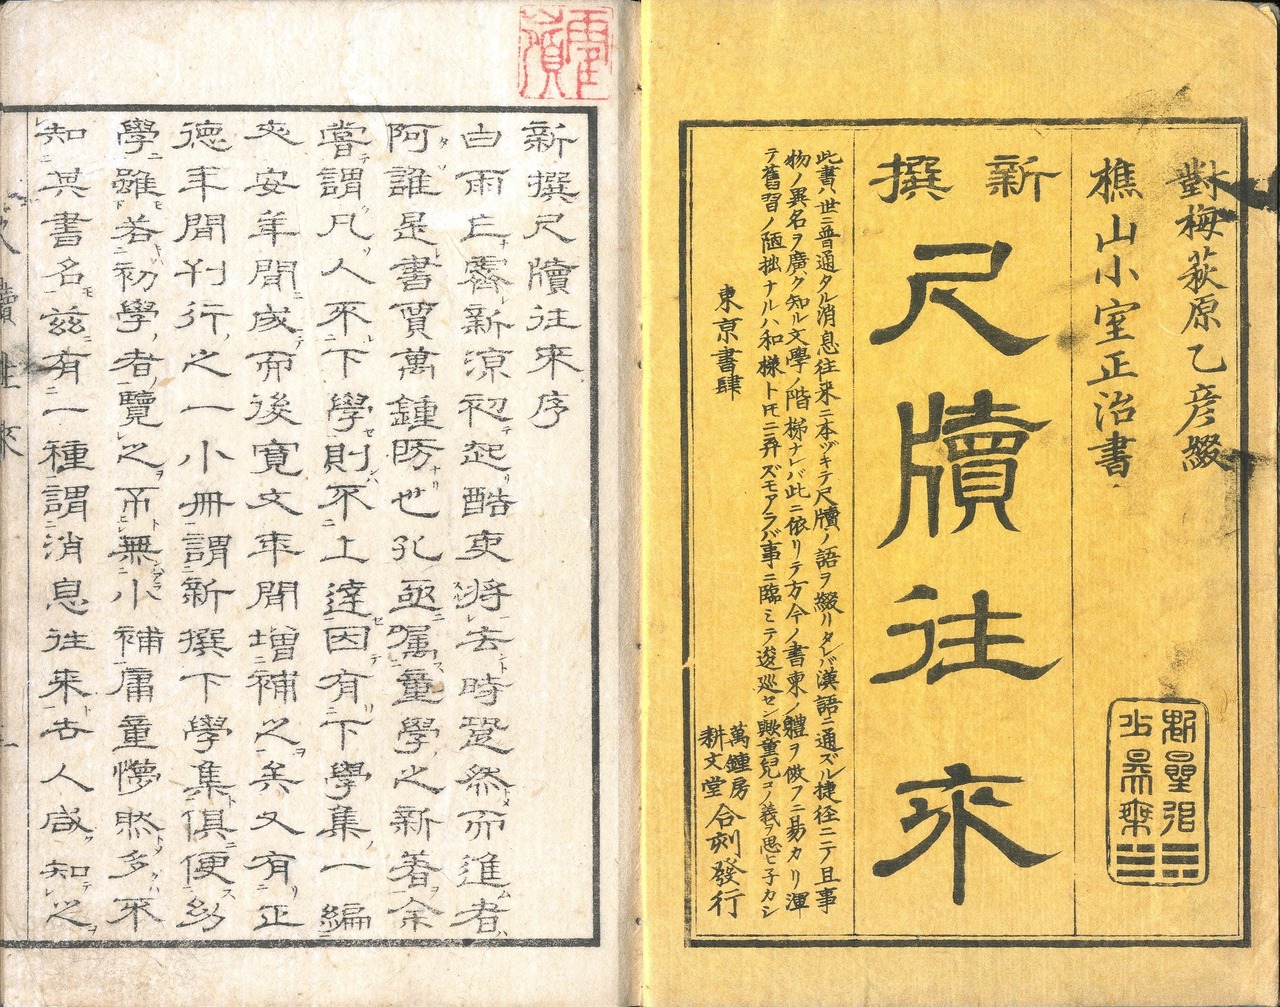 對梅萩原乙彦綴
樵山小室正治書
新撰
尺牘往來
此書ハ世ニ普通タル消息往来ニ本ヅキテ尺牘ノ語ヲ綴リタレバ漢語ニ通ズル捷径ニテ且事
物ノ異名ヲ廣ク知ル文學ノ階梯ナレバ此ニ依リテ方今ノ書柬ノ軆ヲ倣フニ易カリ渾
テ舊習ノ陋拙ナルハ和様トモニ弁ズモアラバ事ニ臨ミテ逡巡セン歟童兒コノ義ヲ思ヒ子カシ
東京書肆
萬鍾房
耕文堂
合刻發行
新撰尺牘往來序
白雨已霽新凉初起酷吏將去時跫然而進者
阿誰是書賈萬鍾房也孔亟属童學之新著余
嘗謂凡人不下學則不上達因有下學集一編
文安年間成而後寛文年間増補之矣又有正
徳年間刊行之一小冊謂新撰下學集俱便幼
學雖若初學者覽之不無小補庸童懜眣多不
知其書名茲有一種謂消息往来古人咸知之